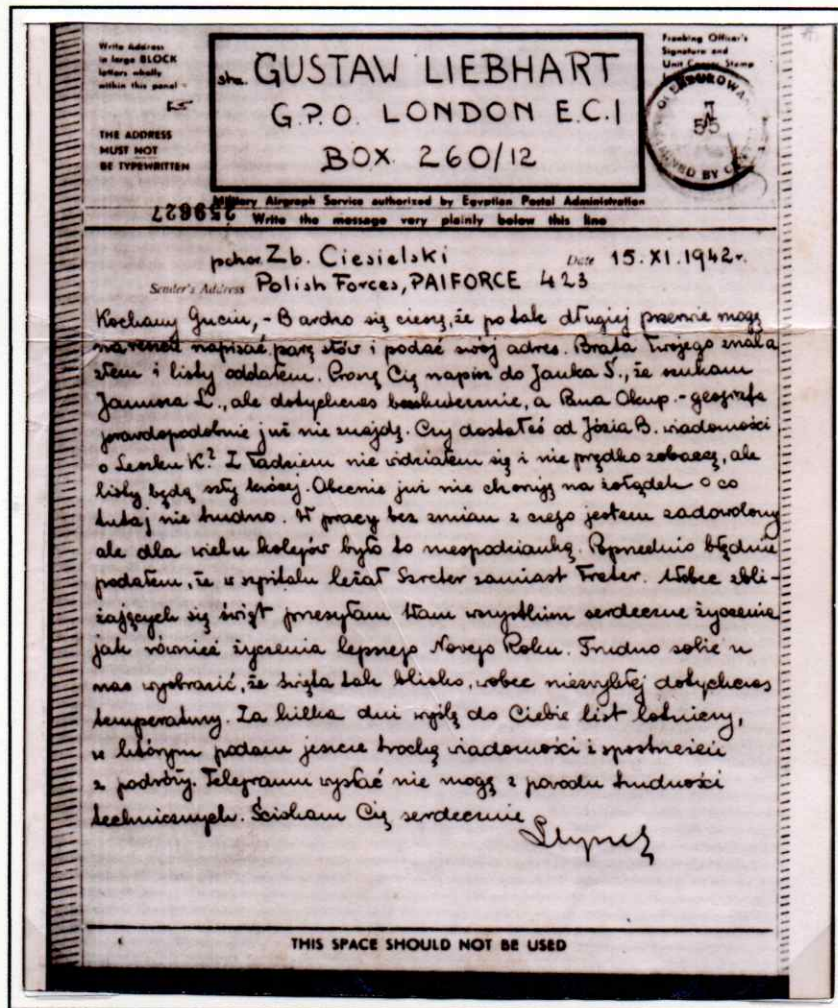 Write Address
in large BLOCK
letters wholly
within this panel
THE ADDRESS
MUST NOT
BE TYPEWRITTEN
GUSTAW LIEBHART
G.P.O. LONDON E.C.1
BOX 260/12
Franking Officer's
Signature and
Unit Censor Stamp
Military Airgraph Service authorized by Egyptian Postal Administration
259627 Write the message very plainly below this line
pchor. Zb. Ciesielski Date 15.XI.1942r.
Sender's Address Polish Forces, PAIFORCE 423
Kochany Guciu, - Bardzo się cieszę, że po tak długiej przerwie mogę
nareszcie napisać parę słów i podać swój adres. Brata Twojego znala
złem i listy oddałem. Proszę Cię napisz do Janka S., że szukam
Janusza L., ale dotychczas bezskutecznie, a Pana Okup. - geografa
prawdopodobnie już nie znajdę. Czy dostałeś od Józia B. wiadomości
o Leszku K? Z Tadziem nie widziałem się i nie prędko zobaczę, ale
listy będą szły krócej. Obecnie już nie choruję na żołądek o co
tutaj nie trudno. W pracy bez zmian z czego jestem zadowolony
ale dla wielu kolegów było to niespodzianką. Poprzednio błędnie
podałem, że w szpitalu leżał Szreter zamiast Freter. Wobec zbli-
żających się świąt przesyłam Wam wszystkim serdeczne życzenia
jak również życzenia lepszego Nowego Roku. Trudno sobie u
nas wyobrazić, że święta tak blisko, wobec niezwykłej dotychczas
temperatury. Za kilka dni wyślę do Ciebie list lotniczy,
w którym podam jeszcze trochę wiadomości i spostrzeżeń
z podróży. Telegramu wysłać nie mogę z powodu trudności
technicznych. Ściskam Cię serdecznie
THIS SPACE SHOULD NOT BE USED